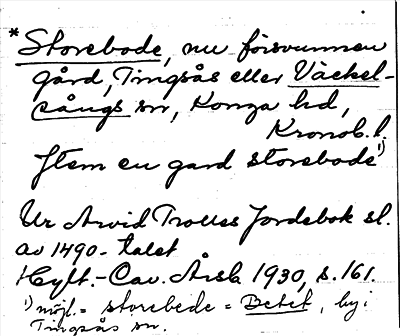 *Storebode, nu försvunnen
gård, Tingsås eller Väckel-
sångs sn, Konga hd,
Kronob. l.
Jtem en gard storebode 1)
Ur Arvid Trolles Jordebok sl.
av 1490-talet
Hylt.-Cav. Årsb. 1930, s. 161.
1) möjl. = storebede = Betet, by i
Tingsås sn.